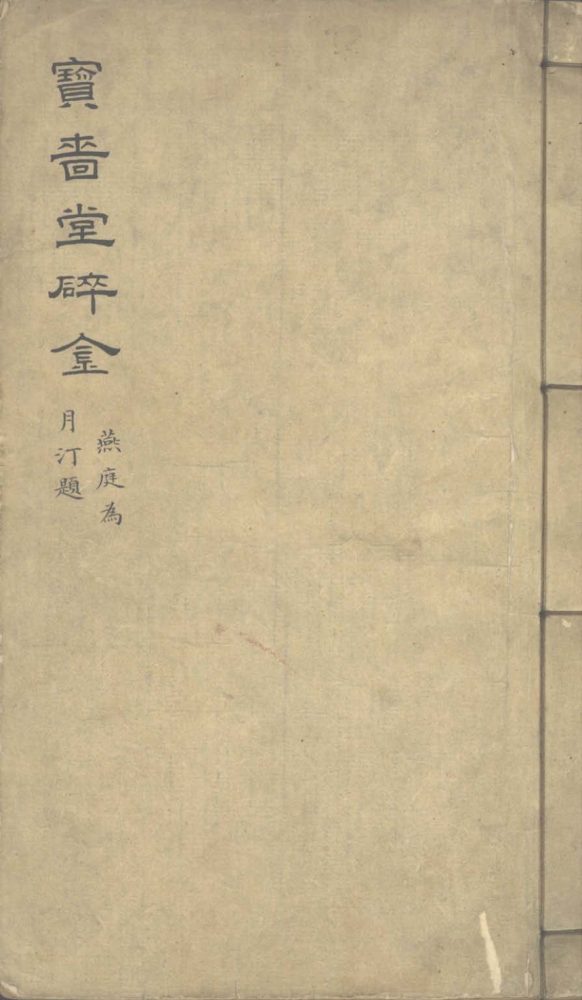 寶啬堂碎金
燕庭為
月汀題